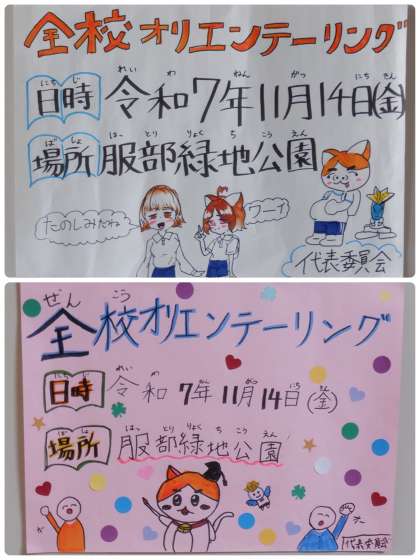 全校オリエンテーリング
にち じ れい わ ねん がつ にち きん
日時 令和7年11月14日(金)
ば しょ はっ とり りょく ち こう えん
場所 服部緑地公園
たのしみだね
ワーイ
代表委員会
ぜん こう
全校オリエンテーリング
れい わ
日時 令和 7年 11月 14日(金)
ば しょ はっ とり りょく ち こう えん
場所 服部緑地公園
代表委員会